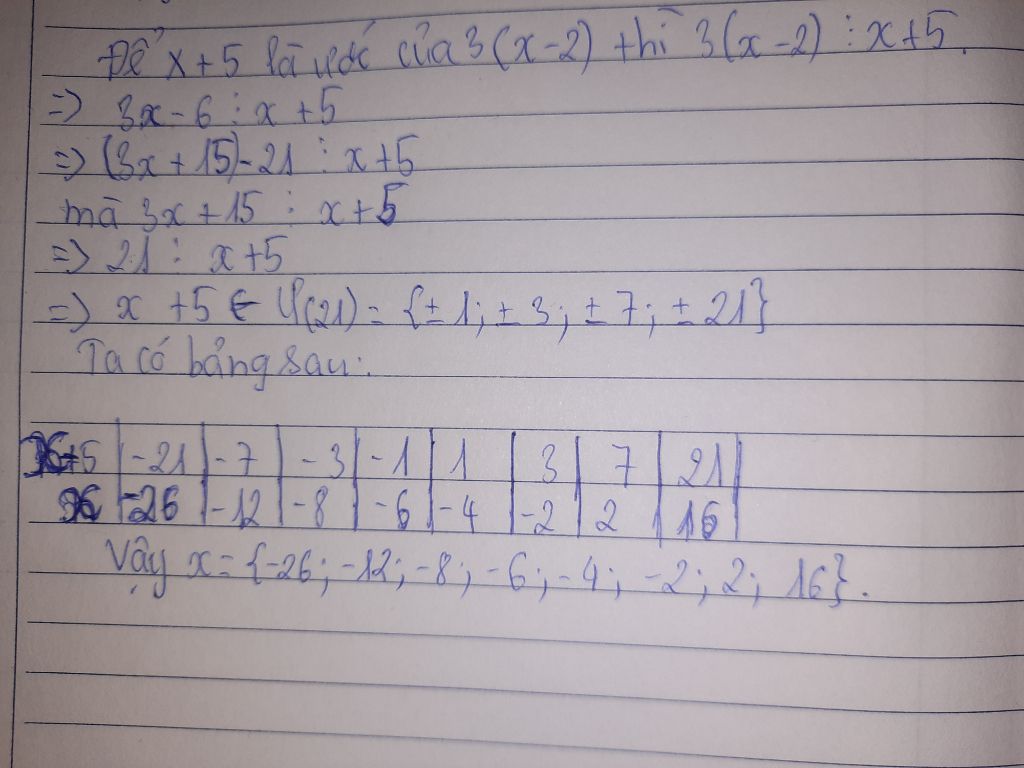 Để x + 5 là ước của 3(x - 2) thì 3(x - 2) ⋮ x + 5.
=> 3x - 6 ⋮ x + 5
=> (3x + 15) - 21 ⋮ x + 5
mà 3x + 15 ⋮ x + 5
=> 21 ⋮ x + 5
=> x + 5 ∈ Ư(21) = {± 1; ± 3; ± 7; ± 21}
Ta có bảng sau:
x+5 | -21 | -7 | -3 | -1 | 1 | 3 | 7 | 21 |
x | -26 | -12 | -8 | -6 | -4 | -2 | 2 | 16 |
Vậy x = {-26; -12; -8; -6; -4; -2; 2; 16}.